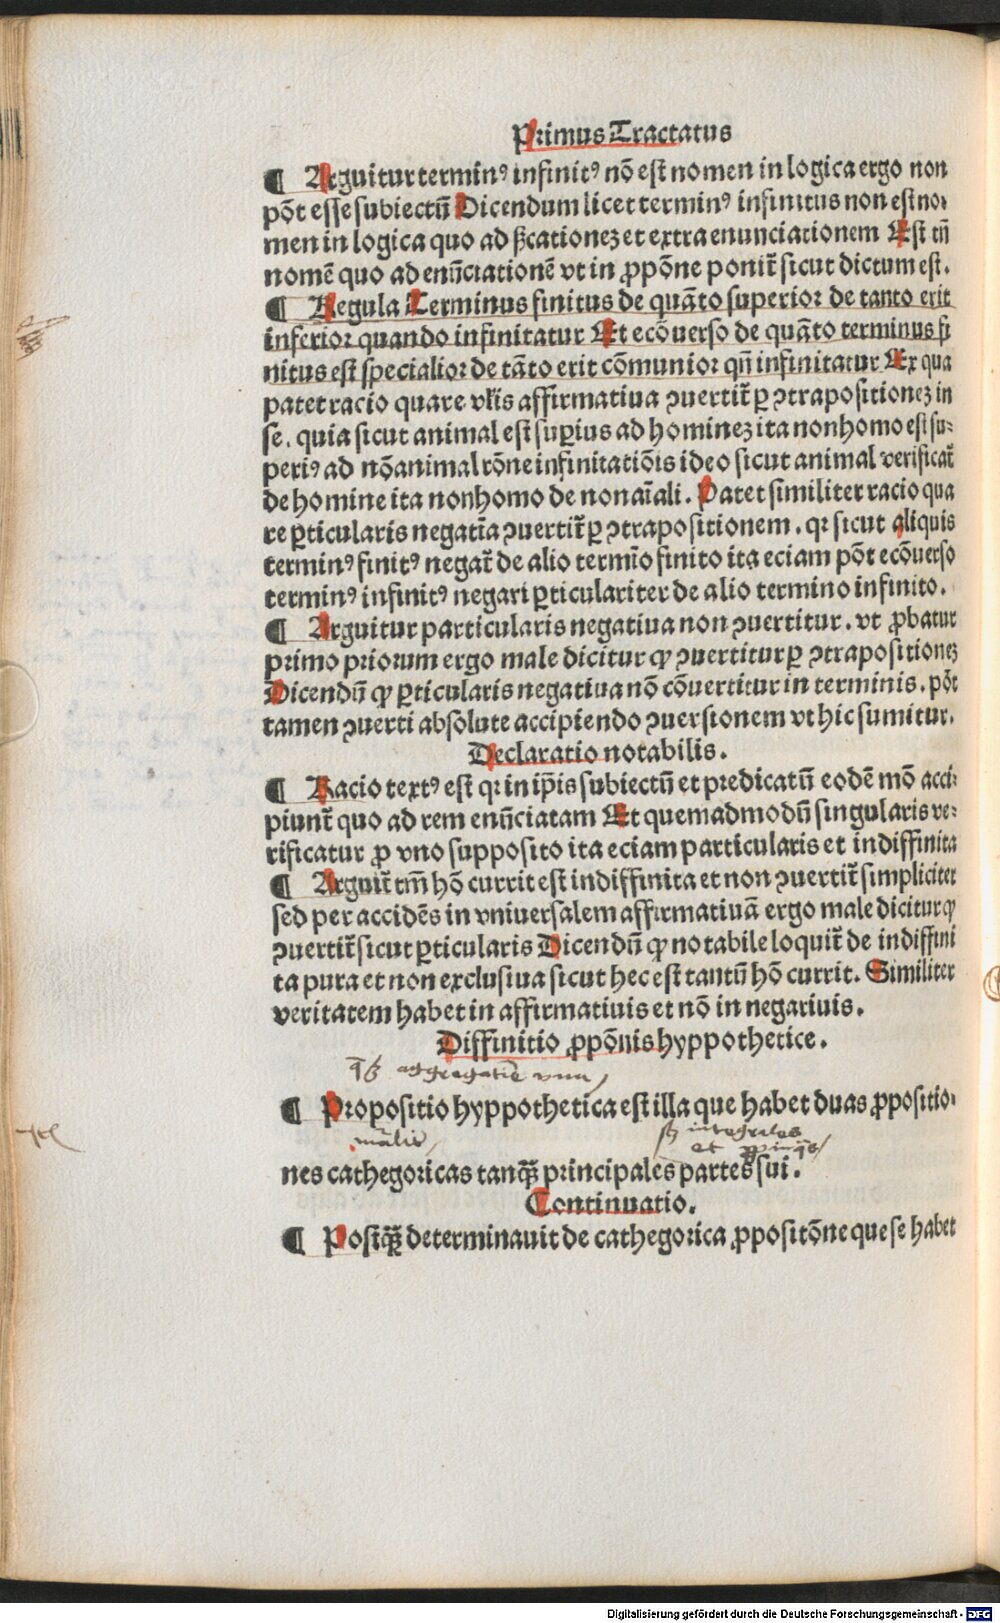 Primus Tractatus
¶ Arguitur terminꝰ infinitꝰ nō est nomen in logica ergo non
pōt esse subiectū Dicendum licet terminꝰ infinitus non est no⸗
men in logica quo ad ßcationeꝫ et extra enunciationem Est tñ
nomē quo ad enūciationē vt in ꝓpōne ponit᷑ sicut dictum est.
¶ Regula Terminus finitus de quāto superior de tanto erit
inferior quando infinitatur Et ecōuerso de quāto terminus fi
nitus est specialior de tāto erit cōmunior qñ infinitatur Ex qua
patet racio quare vl̄is affirmatiua ꝯuertit᷑ ꝑ ꝯtrapositioneꝫ in
se. quia sicut animal est suꝑius ad homineꝫ ita nonhomo est su⸗
periꝰ ad nōanimal rōne infinitatiōis ideo sicut animal verificat᷑
de homine ita nonhomo de nonaīali. Patet similiter racio qua
re ꝑticularis negatīa ꝯuertit᷑ ꝑ ꝯtrapositionem. qꝛ sicut aliquis
terminꝰ finitꝰ negat᷑ de alio termīo finito ita eciam pōt ecōuerso
terminꝰ infinitꝰ negari ꝑticulariter de alio termino infinito.
¶ Arguitur particularis negatiua non ꝯuertitur. vt ꝓbatur
primo priorum ergo male dicitur ꝙ ꝯuertitur ꝑ ꝯtrapositioneꝫ
Dicendū ꝙ ꝑticularis negatiua nō cōuertitur in terminis. pōt
tamen ꝯuerti absolute accipiendo ꝯuersionem vt hic sumitur.
Declaratio notabilis.
¶ Racio textꝰ est qꝛ in ip̄is subiectū et predicatū eodē mō acci⸗
piunt᷑ quo ad rem enūciatam Et quemadmodū singularis ve⸗
rificatur ꝓ vno supposito ita eciam particularis et indiffinita
¶ Arguit᷑ tm̄ hō currit est indiffinita et non ꝯuertit᷑ simpliciter
sed per accidēs in vniuersalem affirmatiuā ergo male dicitur ꝙ
ꝯuertit᷑ sicut ꝑticularis Dicendū ꝙ notabile loquit᷑ de indiffini
ta pura et non exclusiua sicut hec est tantū hō currit. Similiter
veritatem habet in affirmatiuis et nō in negatiuis.
Diffinitio ꝓpōnis hyppothetice.
aggregatiē vnu
¶ Propositio hyppothetica est illa que habet duas ꝓpositio⸗
integrales
et
nes cathegoricas tanqꝫ principales partes sui.
Continuatio.
¶ Postqꝫ determinauit de cathegorica ꝓpositōne que se habet
Digitalisierung gefördert durch die Deutsche Forschungsgemeinschaft - DFG